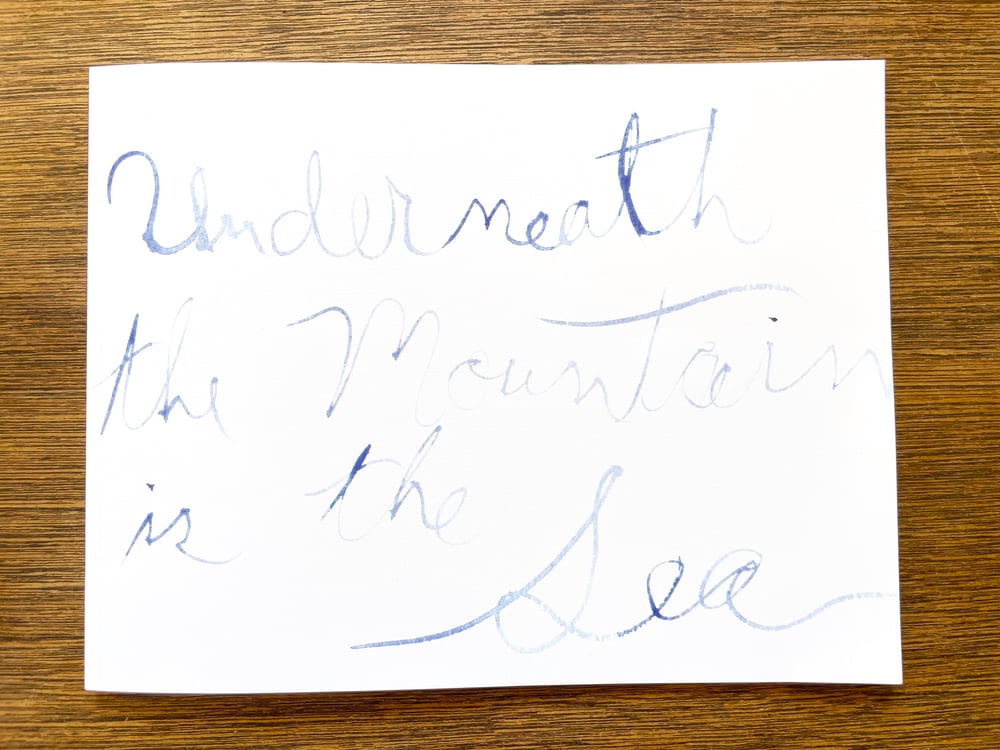 Underneath
the Mountain
is the Sea